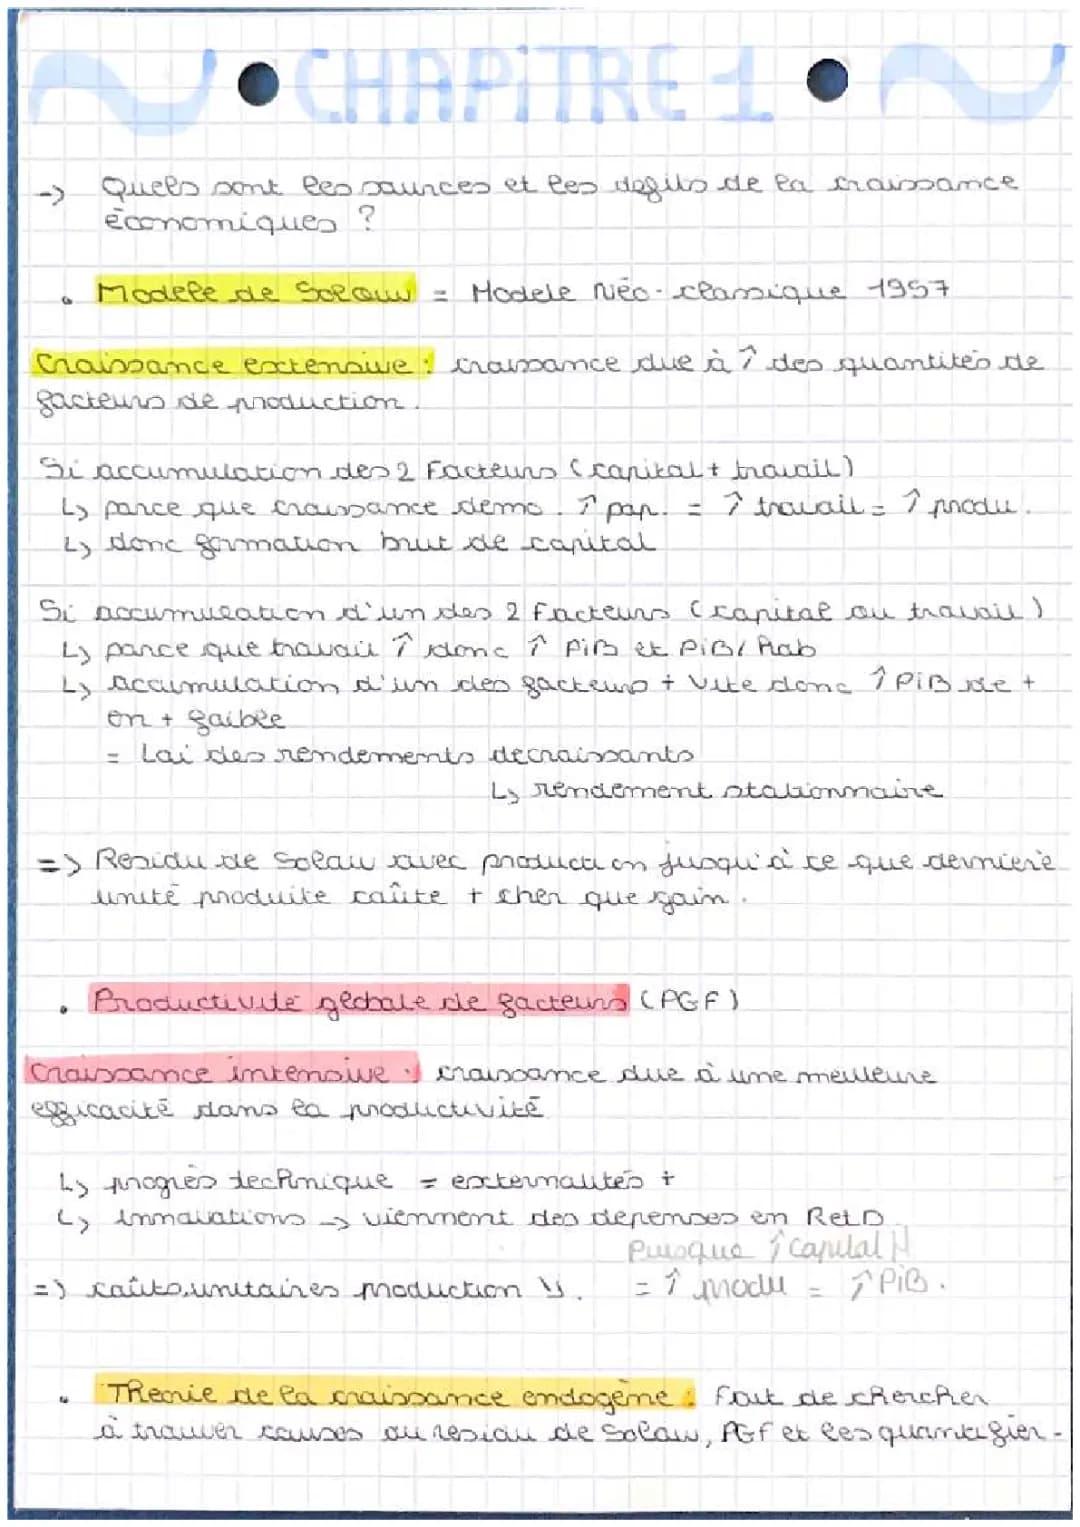 CHAPiTRE 1
-> Quels sont les sources et les defits de la croissance
économiques ?
• Modele de Solow = Modele Néo-classique 1957
Croissance extensive : croissance due à ↑ des quantités de
facteurs de production.
Si accumulation des 2 Facteurs (capital + travail)
↳ parce que croissance demo. ↑ pop. = ↑ travail = ↑ produ.
↳ donc formation brut de capital
Si accumulation d'un des 2 Facteurs (capital ou travail)
↳ parce que travail ↑ donc ↑ PiB et PiB/hab
↳ accumulation d'un des facteurs + vite donc ↑ PiB de +
en + faible
= Loi des rendements decroissants
↳ rendement stationnaire
=> Residu de Solow avec production jusqu'à ce que derniere
unité produite coûte + cher que gain.
• Productivité globale de facteurs (PGF)
Croissance intensive : croissance due à une meilleure
efficacité dans la productivité
↳ progrès technique = externalités +
↳ innovations -> viennent des depenses en RetD
Puisque ↑ Capital H
=> coûts unitaires production ↘. = ↑ produ = ↑ PiB.
• Theorie de la croissance endogène : Fait de chercher
à trouver causes du residu de Solow, PGF et les quantifier.